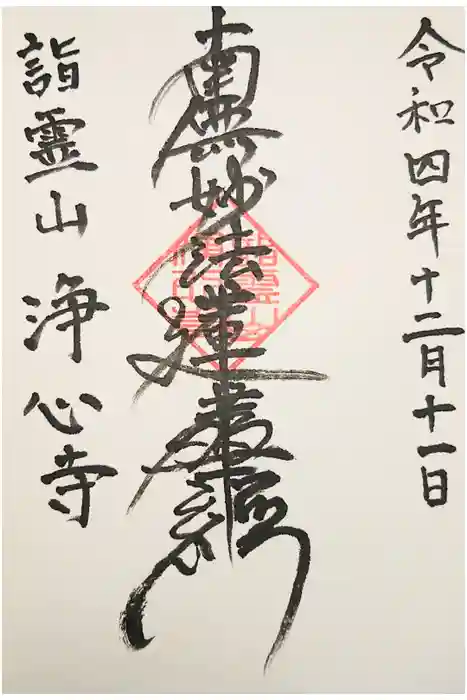 令和四年十二月十一日
南無妙法蓮華経
詣霊山 浄心寺